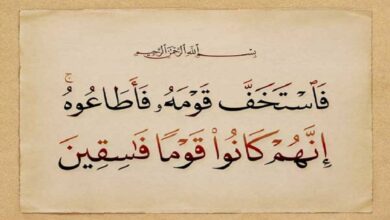 بِسْمِ ٱللَّهِ ٱلرَّحْمَٰنِ ٱلرَّحِيمِ
فَٱسْتَخَفَّ قَوْمَهُۥ فَأَطَاعُوهُ ۚ
إِنَّهُمْ كَانُوا۟ قَوْمًا فَٰسِقِينَ